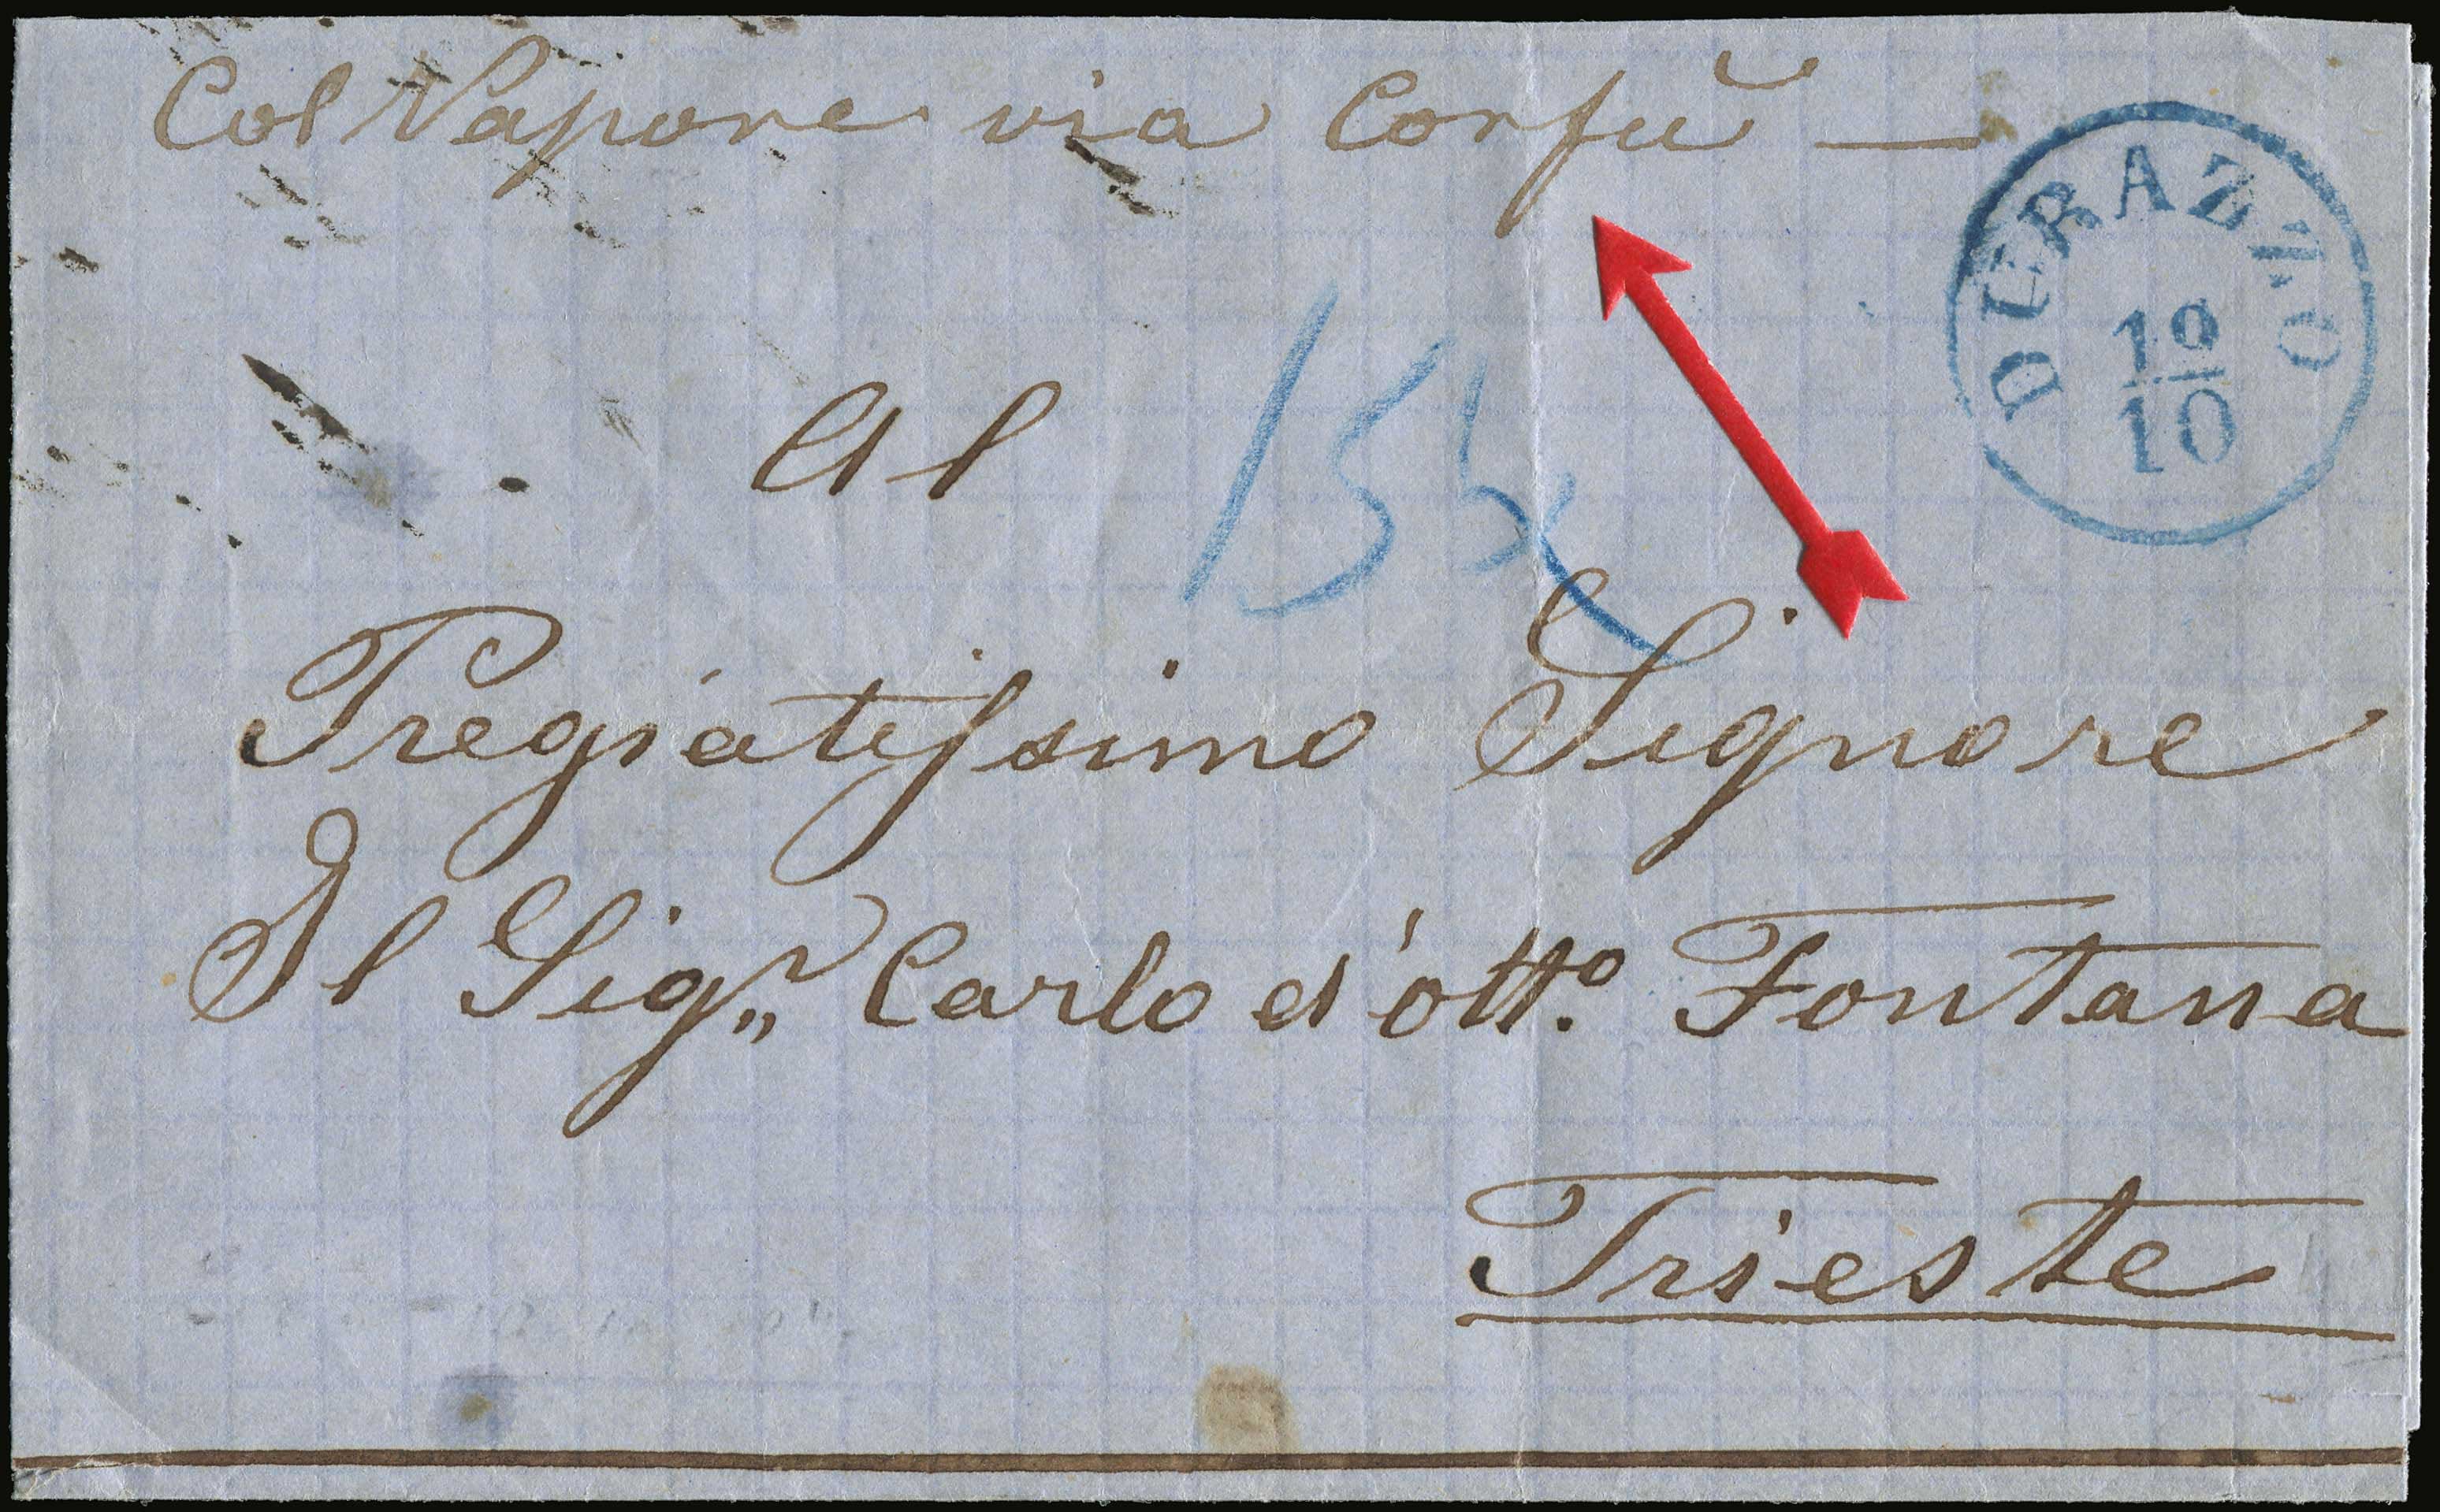 Col Vapore via Corfù —
DURAZZO
19
10
Al
15
Pregiatissimo Signore
Il Sigr. Carlo d'Otto. Fontana
Trieste